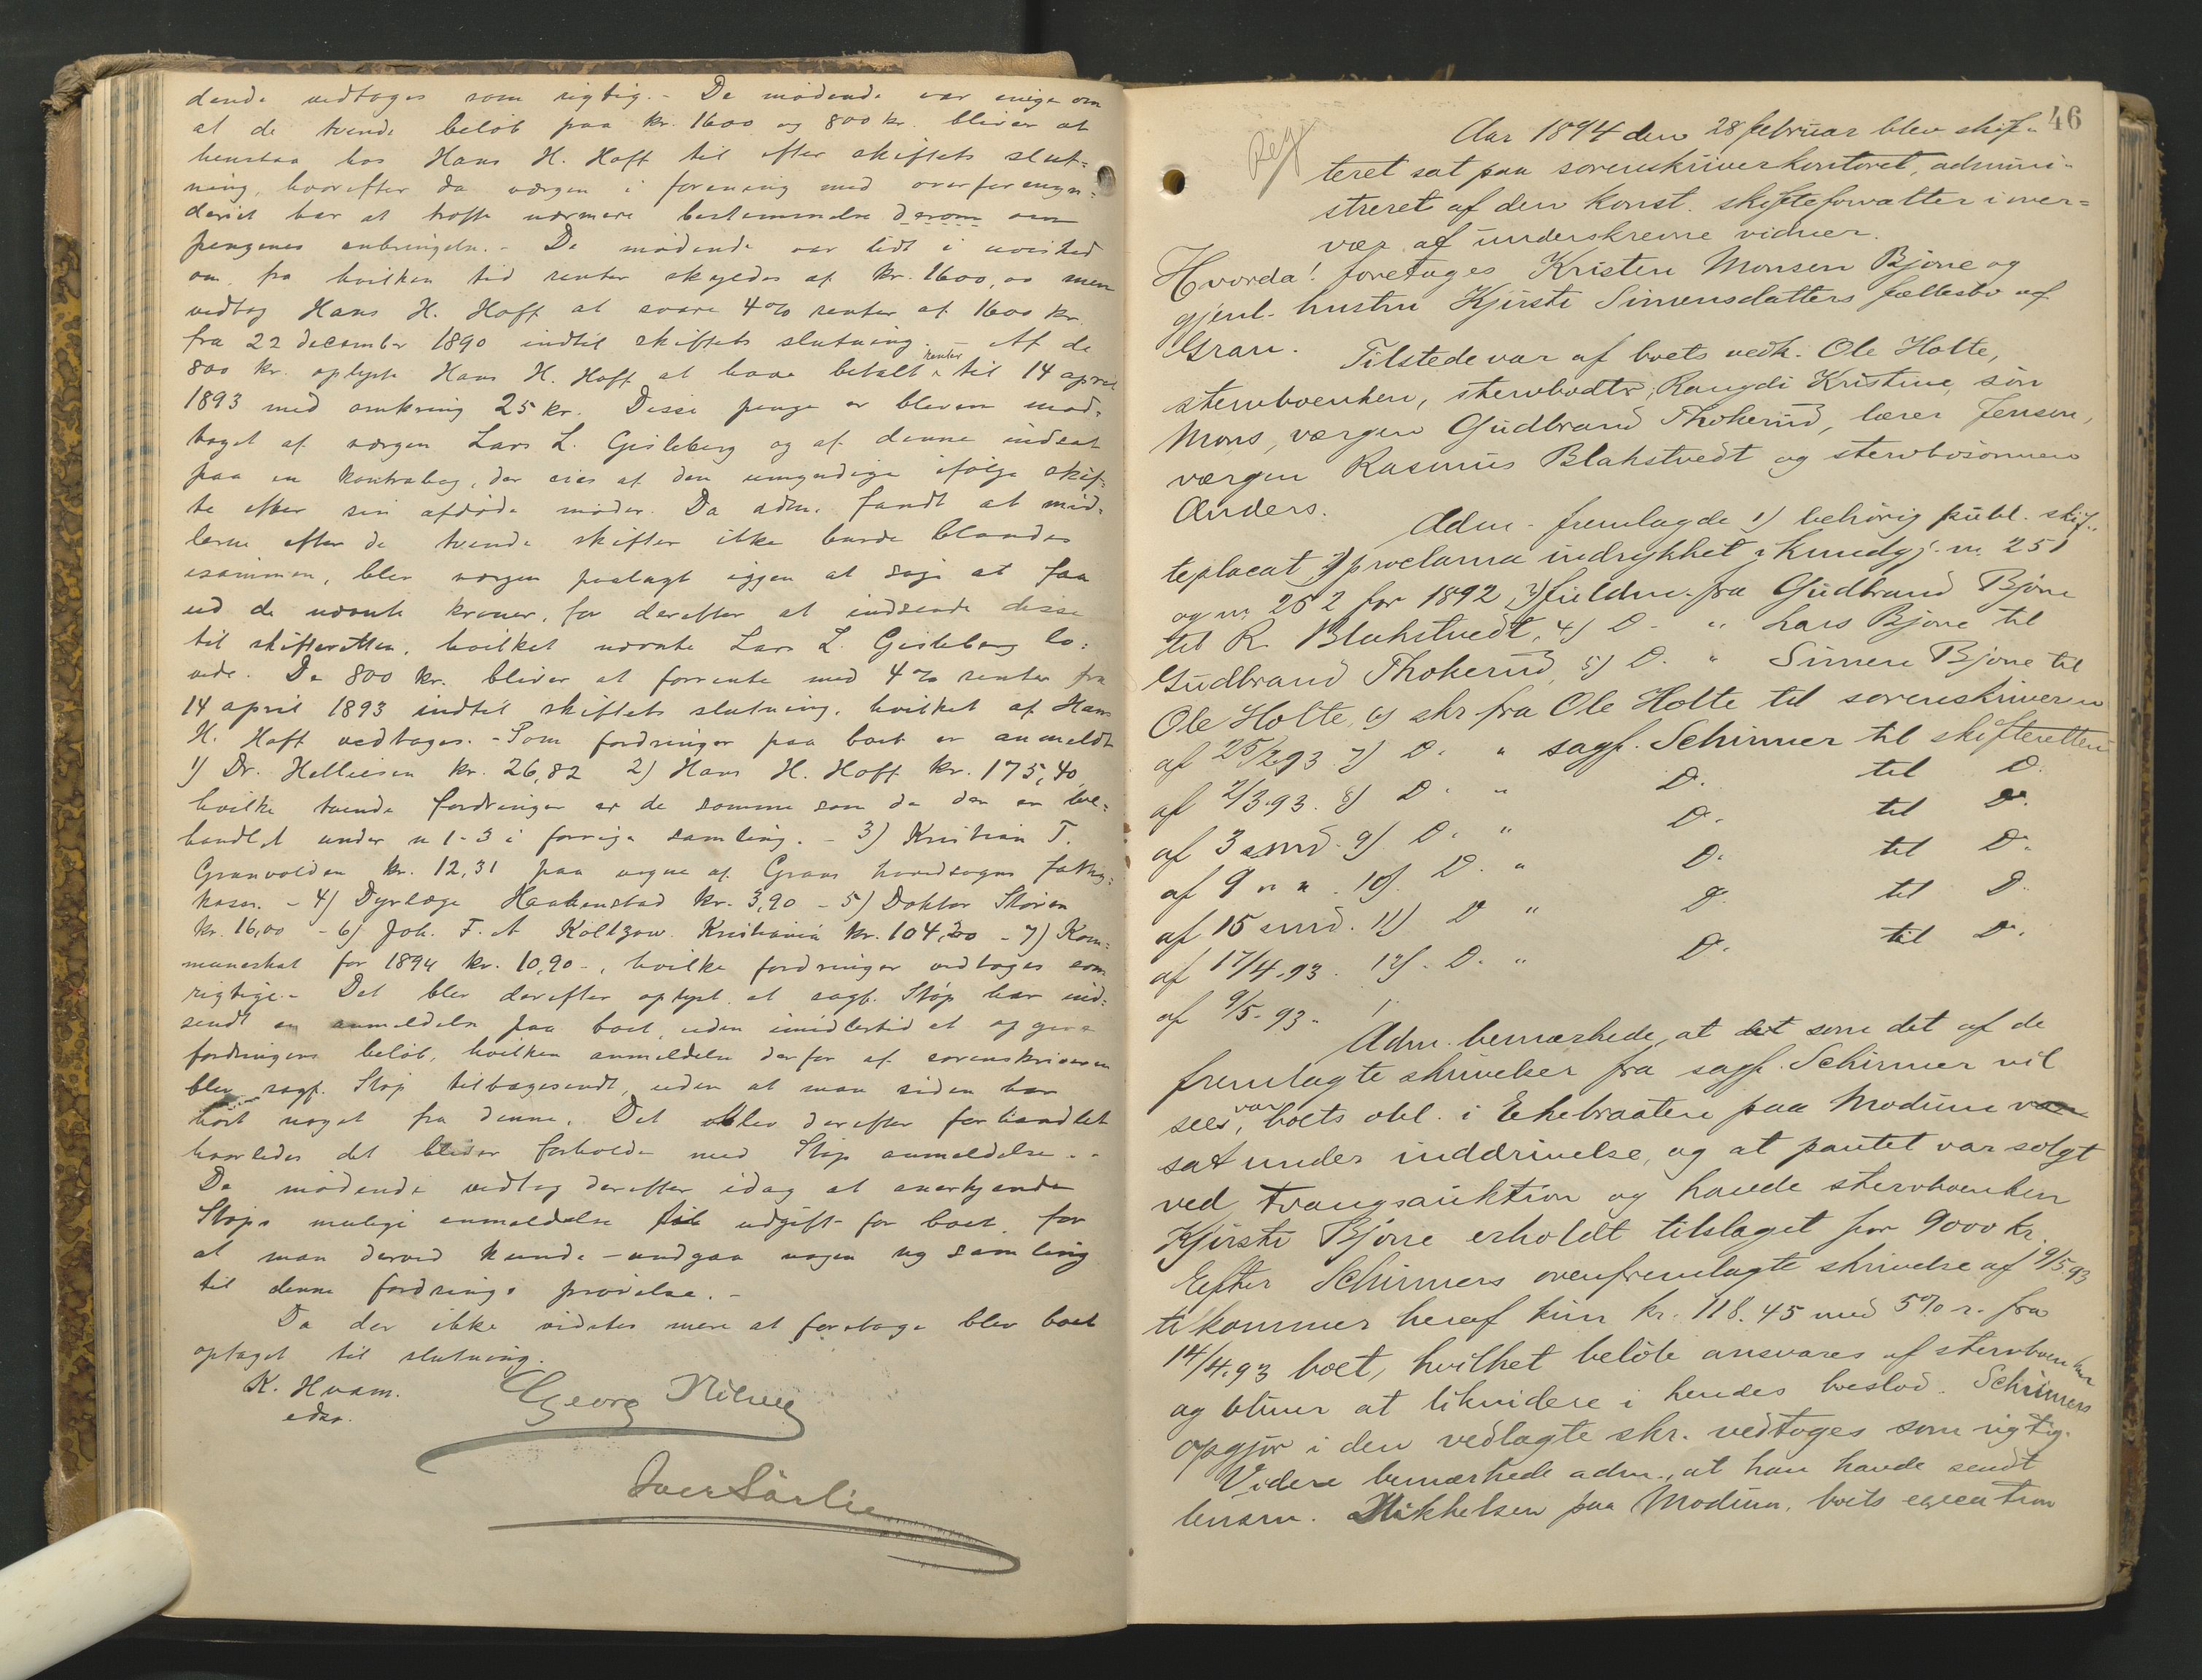 dende vedtoges som rigtig. - De mødende var enige om
at de tvende beløb paa kr. 1600 og 800 kr. bliver at
henstaa hos Hans H. Hoff til efter skiftets slut-
ning, hvorefter da værgen i forening med overformyn-
deriet har at træffe nærmere bestemmelse derom om
pengenes anbringelse. - De mødende var lidt i uvished
om fra hvilken tid renter skyldes af kr. 1600,00 men
vedtog Hans H. Hoff at svare 4% renter af 1600 kr.
fra 22 december 1890 indtil skiftets slutning. - Af de
800 kr. oplyste Hans H. Hoff at have betalt renter til 14 april
1893 med omkring 25 kr. Disse penge er bleven mod-
taget af værgen Lars L. Gisleberg og af denne indsat
paa en kontrabog, der eies af den umyndige ifølge skif-
te efter sin afdøde moder. Da adm. fandt at mid-
lerne efter de tvende skifter ikke burde blandes
isammen, blev værgen paalagt iggen at søge at faa
ud de nævnte kroner, for derefter at indsende disse
til skifteretten, hvilket nævnte Lars L. Gisleberg lo-
vede. De 800 kr. bliver at forrente med 4% renter fra
14 april 1893 indtil skiftets slutning, hvilket af Hans
H. Hoff vedtoges. - Som fordringer paa boet er anmeldt
1) Dr. Helliesen kr. 26,82 2) Hans H. Hoff kr. 175,40
hvilke tvende fordringer er de samme som de der er be-
handlet under n 1-3 i forrige samling. - 3) Kristian T.
Granvolden kr. 12,31 paa vegne af Grans hovedsogns fattig-
kasse. - 4) Dyrlæge Haakenstad kr. 3,90 - 5) Doktor Støren
kr. 16,00 - 6) Joh. F. A Koltzow Kristiania kr. 104,20 - 7) Kom-
muneskat for 1894 kr. 10,90 -, hvilke fordringer vedtoges som
rigtige. - Det blev derefter oplyst at sagf. Støp har ind-
sendt en anmeldelse paa boet, uden imidlertid at opgive
fordringens beløb, hvilken anmeldelse derfor af sorenskriveren
blev sagf. Støp tilbagesendt, uden at man siden har
hørt noget fra denne. Det blev derefter forhandlet
hvorledes det bliver forholde med Støps anmeldelse. -
De mødende vedtog derefter idag at anerkjende
Støps mulige anmeldelse til udgift for boet, for
at man derved kunde undgaa nogen ny samling
til denne fordrings prøvelse. -
Da der ikke vidstes mere at foretage blev boet
optaget til slutning.
K. Hvam.
edsv.
Georg
Iver Sørlie
46
Reg
Aar 1894 den 28 februar blev skif-
teret sat paa sorenskriverkontoret, admini-
streret af den konst. skifteforvalter i over-
vær af underskrevne vidner.
Hvorda! foretoges Kristen Monsen Bjone og
gjenl. hustru Kjirsti Simensdatters fællesbo af
Gran.
Tilstede var af boets vedk. Ole Holte,
stervboenken, stervbodtr. Rangdi Kristine, søn
Mons, værgen Gudbrand Thokerud, lærer Jensen,
værgen Rasmus Blakstvedt og stervbosønnen
Anders.
Adm. fremlagde 1) behørig publ. skif-
teplacat 2) proclama indrykket i kundgj. n. 251
og n. 252 for 1892, 3) fuldm. fra Gudbrand Bjone
til R. Blakstvedt, 4) D. " Lars Bjone til
Gudbrand Thokerud, 5) D. " Simen Bjone til
Ole Holte, 6) skr fra Ole Holte til sorenskriveren
af 25/2 93. 7) D. " sagf. Schirmer til skifteretten
af 2/3 93. 8) D. " D. til D.
af 3 s md. 9) D. " D. til D.
af 9 " ". 10) D. " D. til D.
af 15 s md. 11) D " D. til D.
af 17/4.93. 12) D. " D. til D.
af 9/5.93.
Adm. bemærkede, at det som det af de
fremlagte skrivelser fra sagf. Schirmer vil
sees, var boets obl. i Ekebraaten paa Modum var
sat under inddrivelse, og at pantet var solgt
ved tvangsauktion og havde stervboenken
Kjirsti Bjone erholdt tilslaget for 9000 kr.
Efter Schirmers ovenfremlagte skrivelse af 9/5 93
tilkommer heraf kun kr. 118.45 med 5% r. fra
14/4.93 boet, hvilket beløb ansvares af stervboenken
og bliver at likvidere i hendes boeslod. Schirmers
opgjør i den vedlagte skr. vedtoges som rigtig.
Videre bemærkede adm., at han havde sendt
lensm. Mikkelsen paa Modum, boets execution